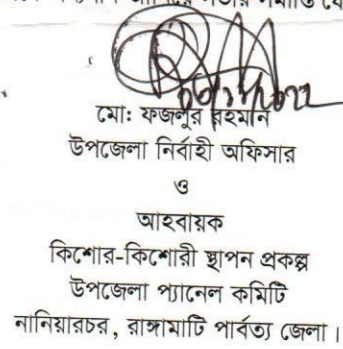 মো: ফজলুর রহমান
উপজেলা নির্বাহী অফিসার
ও
আহবায়ক
কিশোর-কিশোরী স্থাপন প্রকল্প
উপজেলা প্যানেল কমিটি
নানিয়ারচর, রাঙ্গামাটি পার্বত্য জেলা।